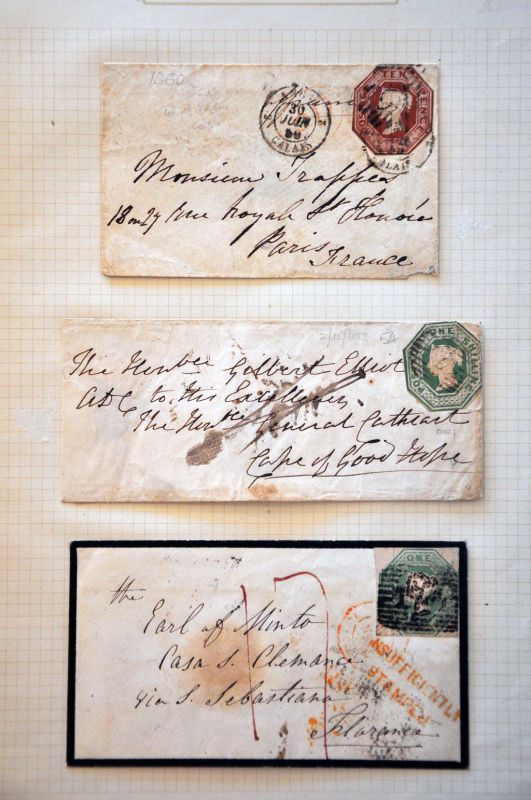 1850
30
JUIN
50
CALAIS
TEN PENCE
POSTAGE
CALAIS
Monsieur Trappes
18 ou 27 rue Royale St Honoré
Paris
France
5A
ONE SHILLING
The Honble Gilbert Elliot
ADC to His Excellency
The Honble General Cathcart
Cape of Good Hope
ONE
the
Earl of Minto
Casa S. Clemente
Via S. Sebastiano
Florence
17
INSUFFICIENTLY
STAMPED